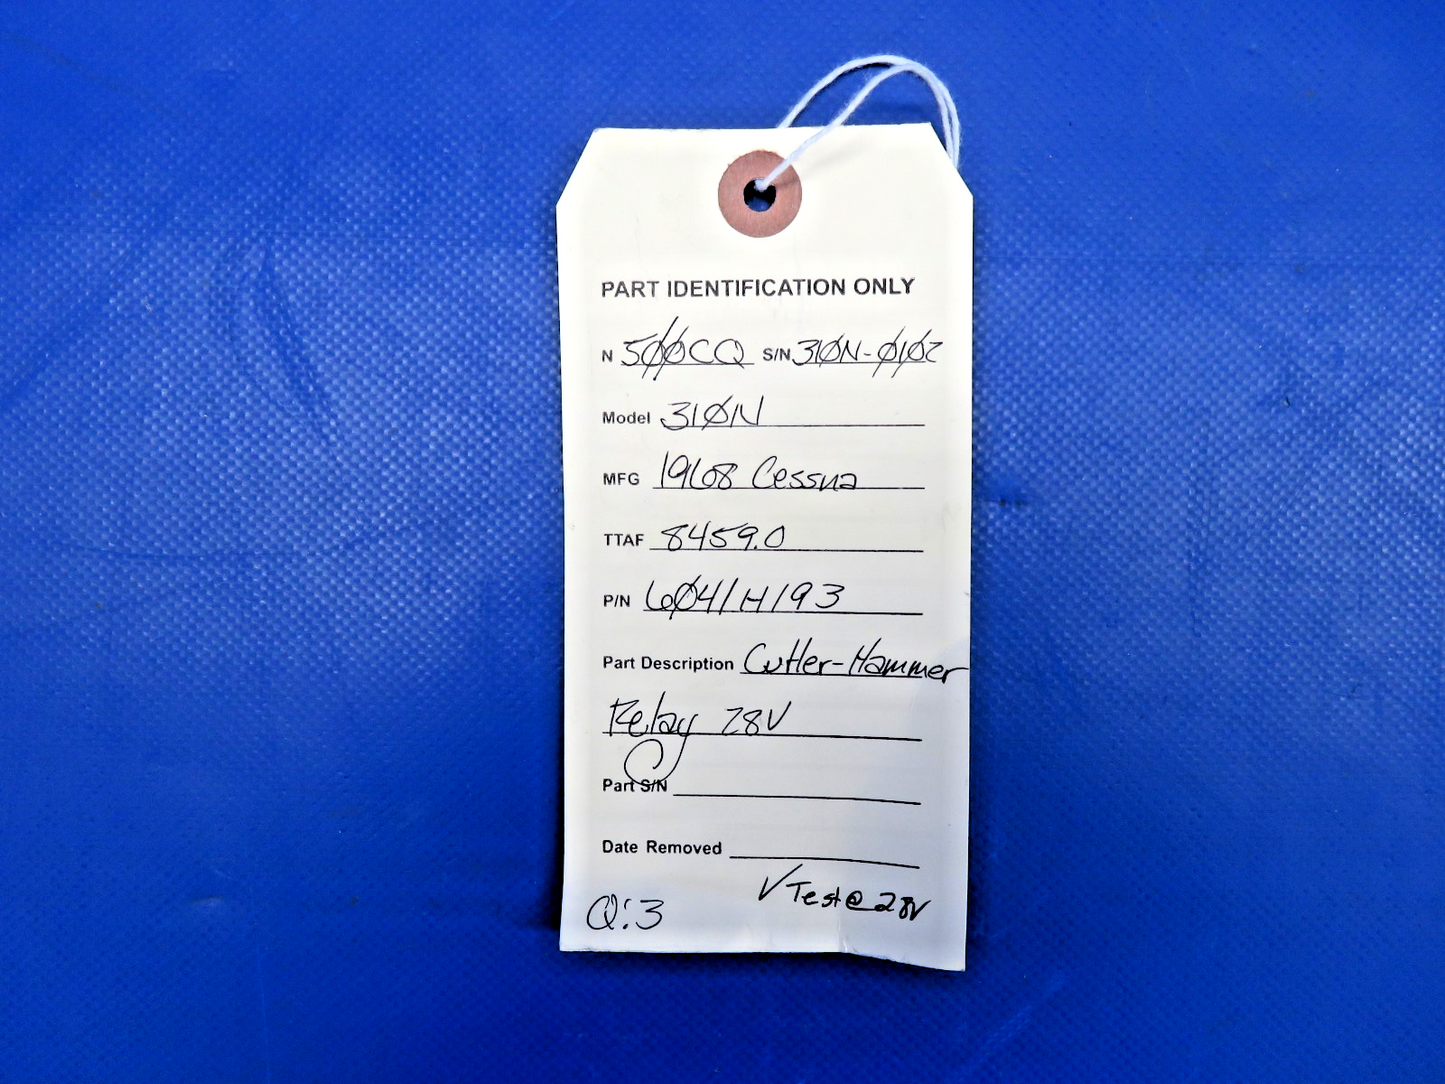 PART IDENTIFICATION ONLY
N 500CQ S/N 310N-0102
Model 310N
MFG 1968 Cessna
TTAF 8459.0
P/N 6041H193
Part Description Cutler-Hammer
Relay 28V
Part S/N
Date Removed
✓ Test @ 28V
Q:3